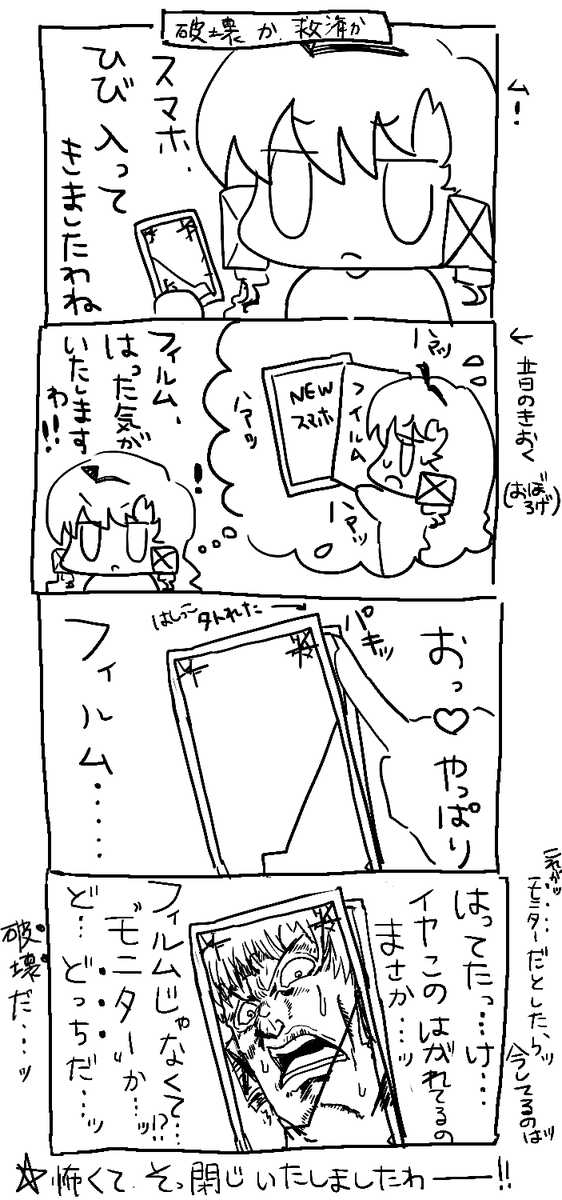 破壊か救済か
ム!
スマホ.
ひび入って
きましたわね
←昔のきおく
(おぼろげ)
ハァッ
NEW
スマホ
フィルム
ハァッ
ハァッ
フィルム、
はった気が
いたします
わ!!
!
はしっこ外れた→
パキッ
おっ♡やっぱり
フィルム......
はってたっ…け…
イヤこのはがれてるの
まさか…ッ
フィルムじゃなくて…
"モニター"か…ッ!?
ど…どっちだ…ッ
これがッ
モニターだとしたらッ
今してるのはッ
破壊だ…ッ
☆怖くてそっ閉じいたしましたわーー!!